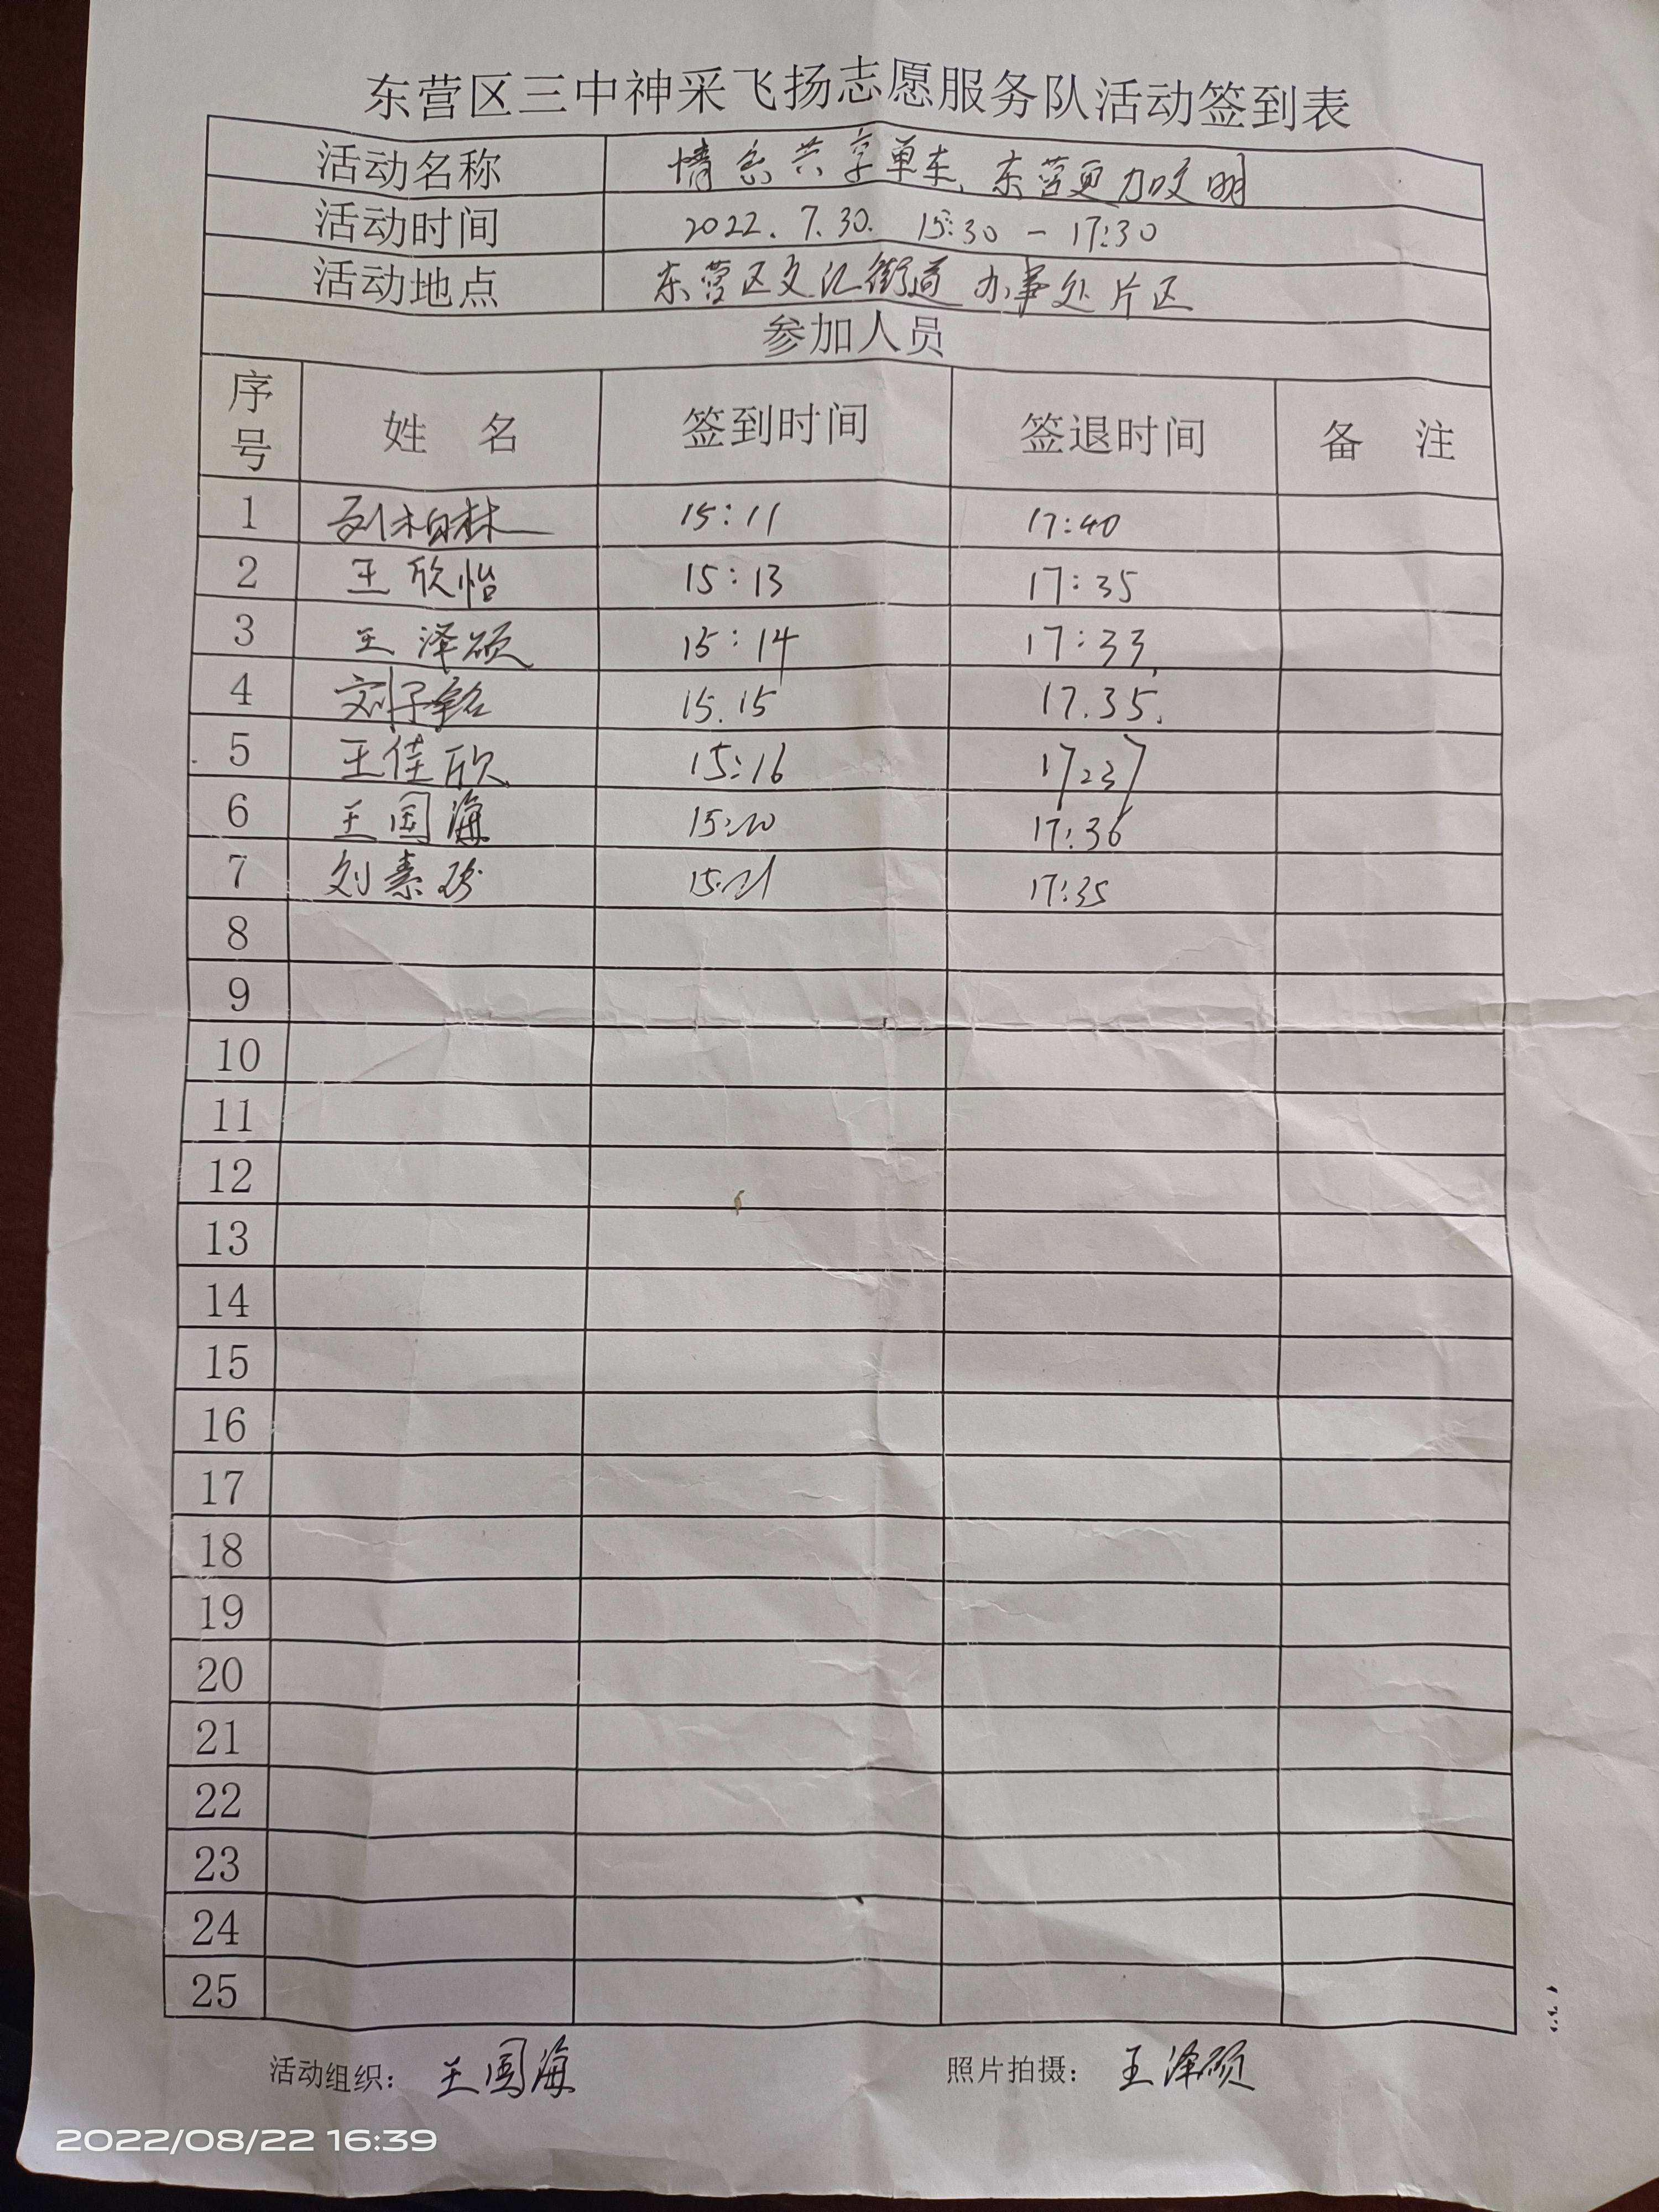 东营区三中神采飞扬志愿服务队活动签到表
活动名称 情系共享单车、东营更加文明
活动时间 2022.7.30. 15:30-17:30
活动地点 东营区文汇街道办事处片区
参加人员
序号 姓 名 签到时间 签退时间 备 注
1 刘柏林 15:11 17:40
2 王欣怡 15:13 17:35
3 王泽硕 15:14 17:33
4 刘子铭 15.15 17.35.
5 王佳欣 15:16 1737
6 王国海 15:20 17:36
7 刘素 15:21 17:35
8
9
10
11
12
13
14
15
16
17
18
19
20
21
22
23
24
25
活动组织： 王国海 照片拍摄： 王泽硕
2022/08/22 16:39